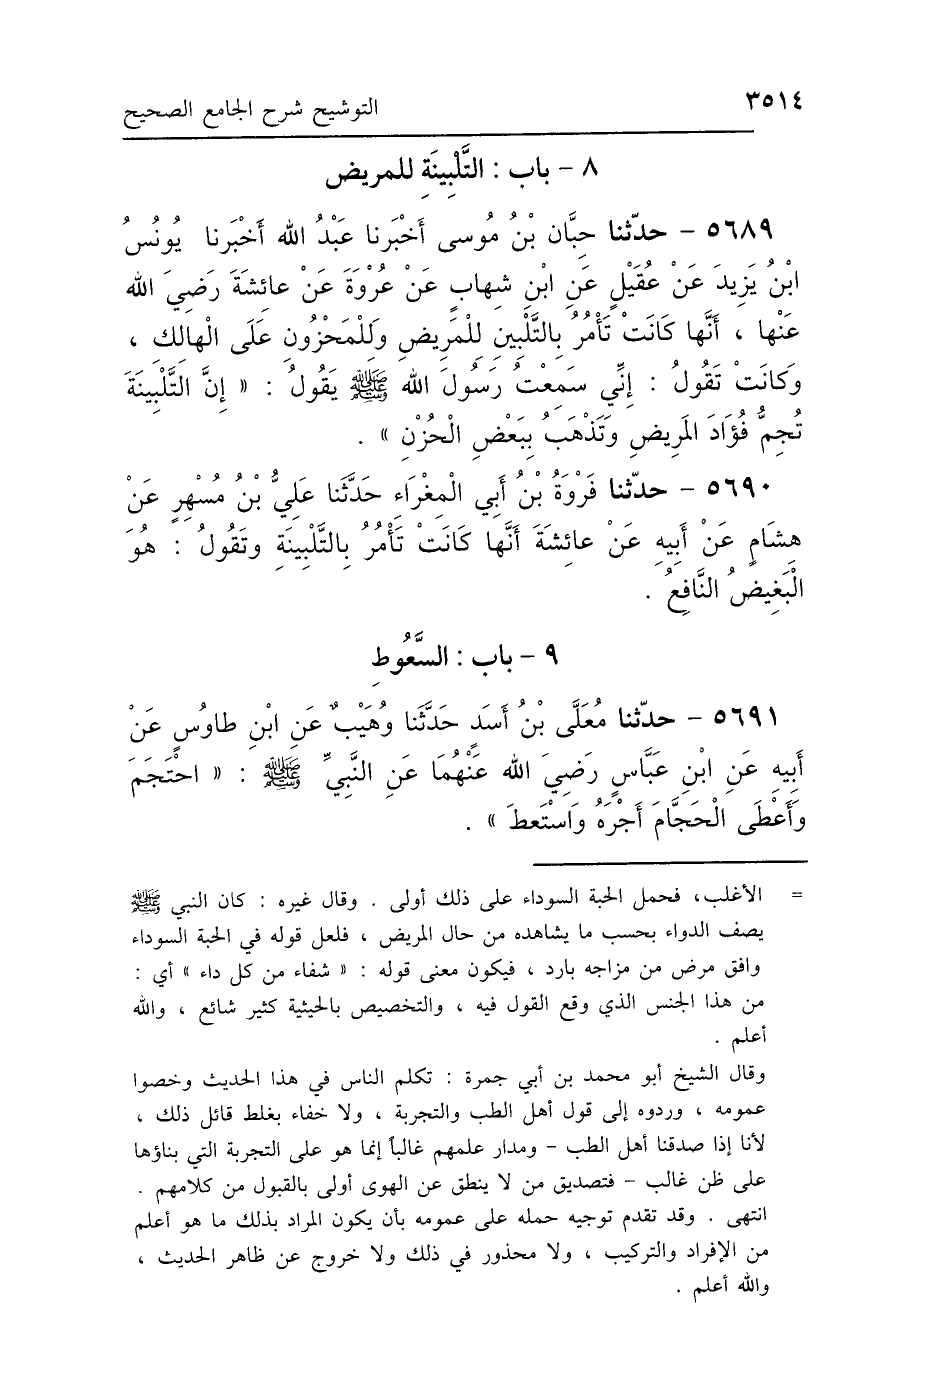 ٣٥١٤
التوشيح شرح الجامع الصحيح
٨ - باب : التَّلْبِينَةِ للمريضِ
٥٦٨٩ - حدّثنا حِبَّان بْنُ مُوسى أَخْبَرنا عَبْدُ الله أَخْبَرنا يُونُسُ
ابْنُ يَزِيدَ عَنْ عُقَيْلٍ عَنِ ابْنِ شِهابٍ عَنْ عُرْوَةَ عَنْ عائِشَةَ رَضِيَ الله
عَنْها ، أَنَّها كَانَتْ تَأْمُرُ بالتَّلْبِينِ لِلْمَرِيضِ وَلِلْمَحْزُونِ عَلَى الْهالِكِ ،
وَكَانَتْ تَقُولُ : إِنِّي سَمِعْتُ رَسُولَ الله ﷺ يَقُولُ : « إِنَّ التَّلْبِينَةَ
تُجِمُّ فُؤَادَ المَرِيضِ وَتَذْهَبُ بِبَعْضِ الْحُزْنِ » .
٥٦٩٠ - حدّثنا فَرْوَةُ بْنُ أَبِي الْمِغْرَاءِ حَدَّثَنا عَلِيُّ بْنُ مُسْهِرٍ عَنْ
هِشَامٍ عَنْ أَبِيهِ عَنْ عائِشَةَ أَنَّها كَانَتْ تَأْمُرُ بالتَّلْبِينَةِ وتَقُولُ : هُوَ
الْبَغِيضُ النَّافِعُ .
٩ - باب : السَّعُوطِ
٥٦٩١ - حدّثنا مُعَلَّى بْنُ أَسَدٍ حَدَّثَنا وُهَيْبٌ عَنِ ابْنِ طاوُسٍ عَنْ
أَبِيهِ عَنِ ابْنِ عَبَّاسٍ رَضِيَ الله عَنْهُمَا عَنِ النَّبِيِّ ﷺ : « احْتَجَمَ
وَأَعْطَى الْحَجَّامَ أَجْرَهُ وَاسْتَعطَ » .
= الأغلب، فحمل الحبة السوداء على ذلك أولى . وقال غيره : كان النبي ﷺ
يصف الدواء بحسب ما يشاهده من حال المريض ، فلعل قوله في الحبة السوداء
وافق مرض من مزاجه بارد ، فيكون معنى قوله : « شفاء من كل داء » أي :
من هذا الجنس الذي وقع القول فيه ، والتخصيص بالحيثية كثير شائع ، والله
أعلم .
وقال الشيخ أبو محمد بن أبي جمرة : تكلم الناس في هذا الحديث وخصوا
عمومه ، وردوه إلى قول أهل الطب والتجربة ، ولا خفاء بغلط قائل ذلك ،
لأنا إذا صدقنا أهل الطب - ومدار علمهم غالباً إنما هو على التجربة التي بناؤها
على ظن غالب - فتصديق من لا ينطق عن الهوى أولى بالقبول من كلامهم .
انتهى . وقد تقدم توجيه حمله على عمومه بأن يكون المراد بذلك ما هو أعلم
من الإفراد والتركيب ، ولا محذور في ذلك ولا خروج عن ظاهر الحديث ،
والله أعلم .